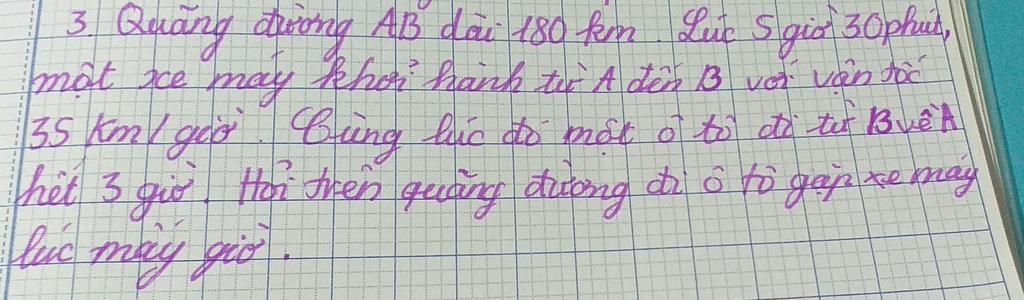 3. Quãng đường AB dài 180 km. Lúc 5 giờ 30phút,
một xe máy khởi hành từ A đến B với vận tốc
35 Km/giờ. Cùng lúc đó một ô tô đi từ B về A
hết 3 giờ. Hỏi trên quãng đường đi ô tô gặp xe máy
lúc mấy giờ.